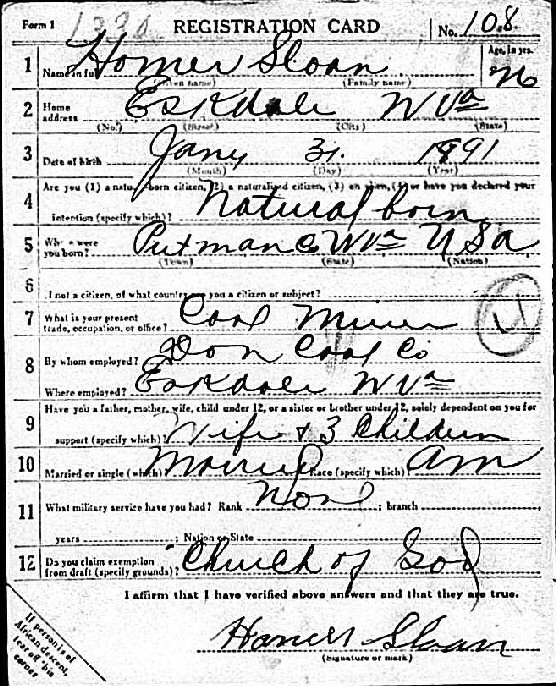 Form 1
REGISTRATION CARD
No. 108
1 Name in full Homer Sloan Age, in yrs. 26
(Given name) (Family name)
2 Home address Eskdale W Va
(No.) (Street) (City) (State)
3 Date of birth Jany 31. 1891
(Month) (Day) (Year)
4 Are you (1) a natural-born citizen, (2) a naturalized citizen, (3) an alien, (4) or have you declared your
intention (specify which)? Natural born
5 Where were you born? Putman Co W Va U S a
(Town) (State) (Nation)
6 If not a citizen, of what country are you a citizen or subject?
7 What is your present trade, occupation, or office? Coal Miner
8 By whom employed? Don Coal Co
Where employed? Eskdale W Va
9 Have you a father, mother, wife, child under 12, or a sister or brother under 12, solely dependent on you for
support (specify which)? Wife & 3 Children
10 Married or single (which)? Married Race (specify which)? Am
11 What military service have you had? Rank Non ; branch
years ; Nation or State
12 Do you claim exemption from draft (specify grounds)? Church of God
I affirm that I have verified above answers and that they are true.
Homer Sloan
(Signature or mark)
If person is of
African descent,
tear off this
corner